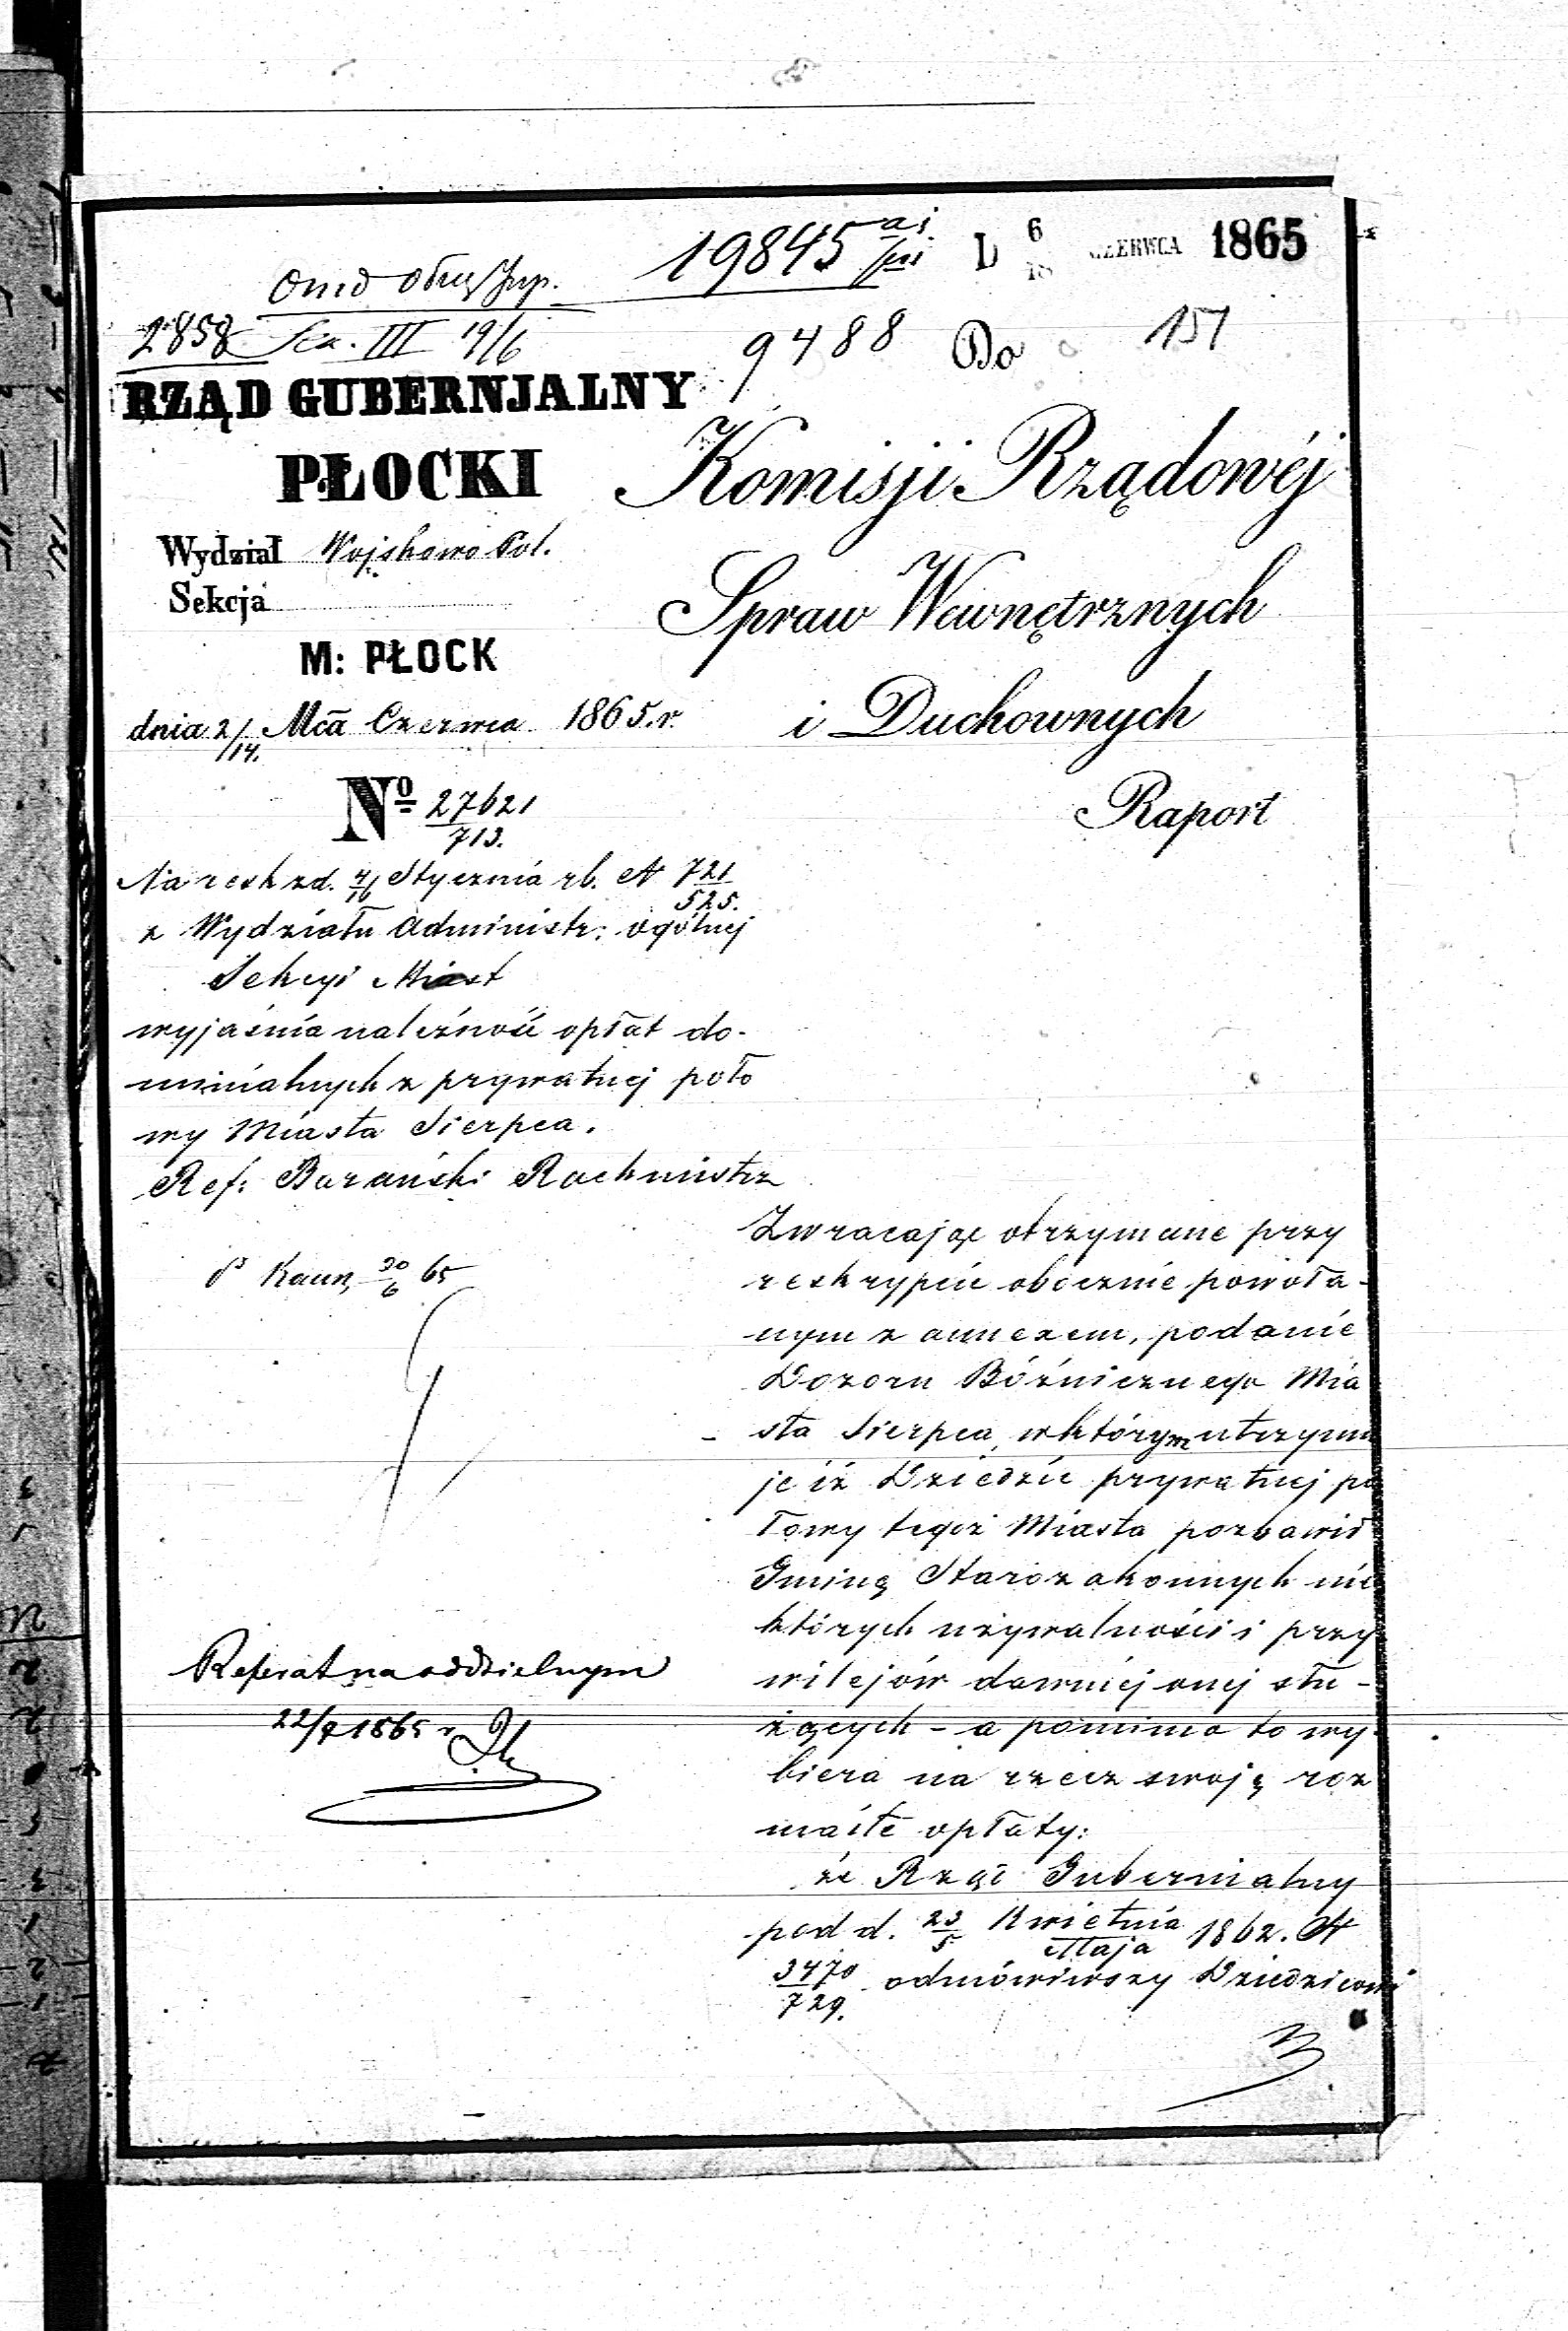 19845
6
18
CZERWCA 1865
2858 III 19/6
9488 Do 151
RZĄD GUBERNJALNY
PŁOCKI
Komisji Rządowéj
Wydział Wojskowo Pol.
Sekcja
Spraw Wewnętrznych
M: PŁOCK
dnia 2/14. Mca Czerwca 1865.r.
i Duchownych
No 27621/713.
Raport
Na resk zd. 4/16 Stycznia rb. N 721/525.
z Wydziału Administr: ogólnej
Sekcyi Miast
wyjaśnia należność opłat do-
minialnych z prywatnej poło
wy Miasta Sierpca.
Ref: Barański Rachmistrz
30/6 65
Referat na oddzielnym
1865 r
Zwracając otrzymane przy
reskrypcie obocznie powoła-
nym z annexem, podanie
Dozoru Bóźnicznego Mia
sta Sierpca, w którym utrzymu
je iż Dziedzic prywatnej po
łowy tegoż Miasta pozbawił
Gminę Starozakonnych nie
których używalności i przy
wilejów dawniej onej słu-
żących – a pomimo to wy-
biera na rzecz swoję roz
maite opłaty:
że Rząd Gubernialny
pod d. 23/5 Kwietnia/Maja 1862. N
3470/729. odmówiwszy Dziedzicowi